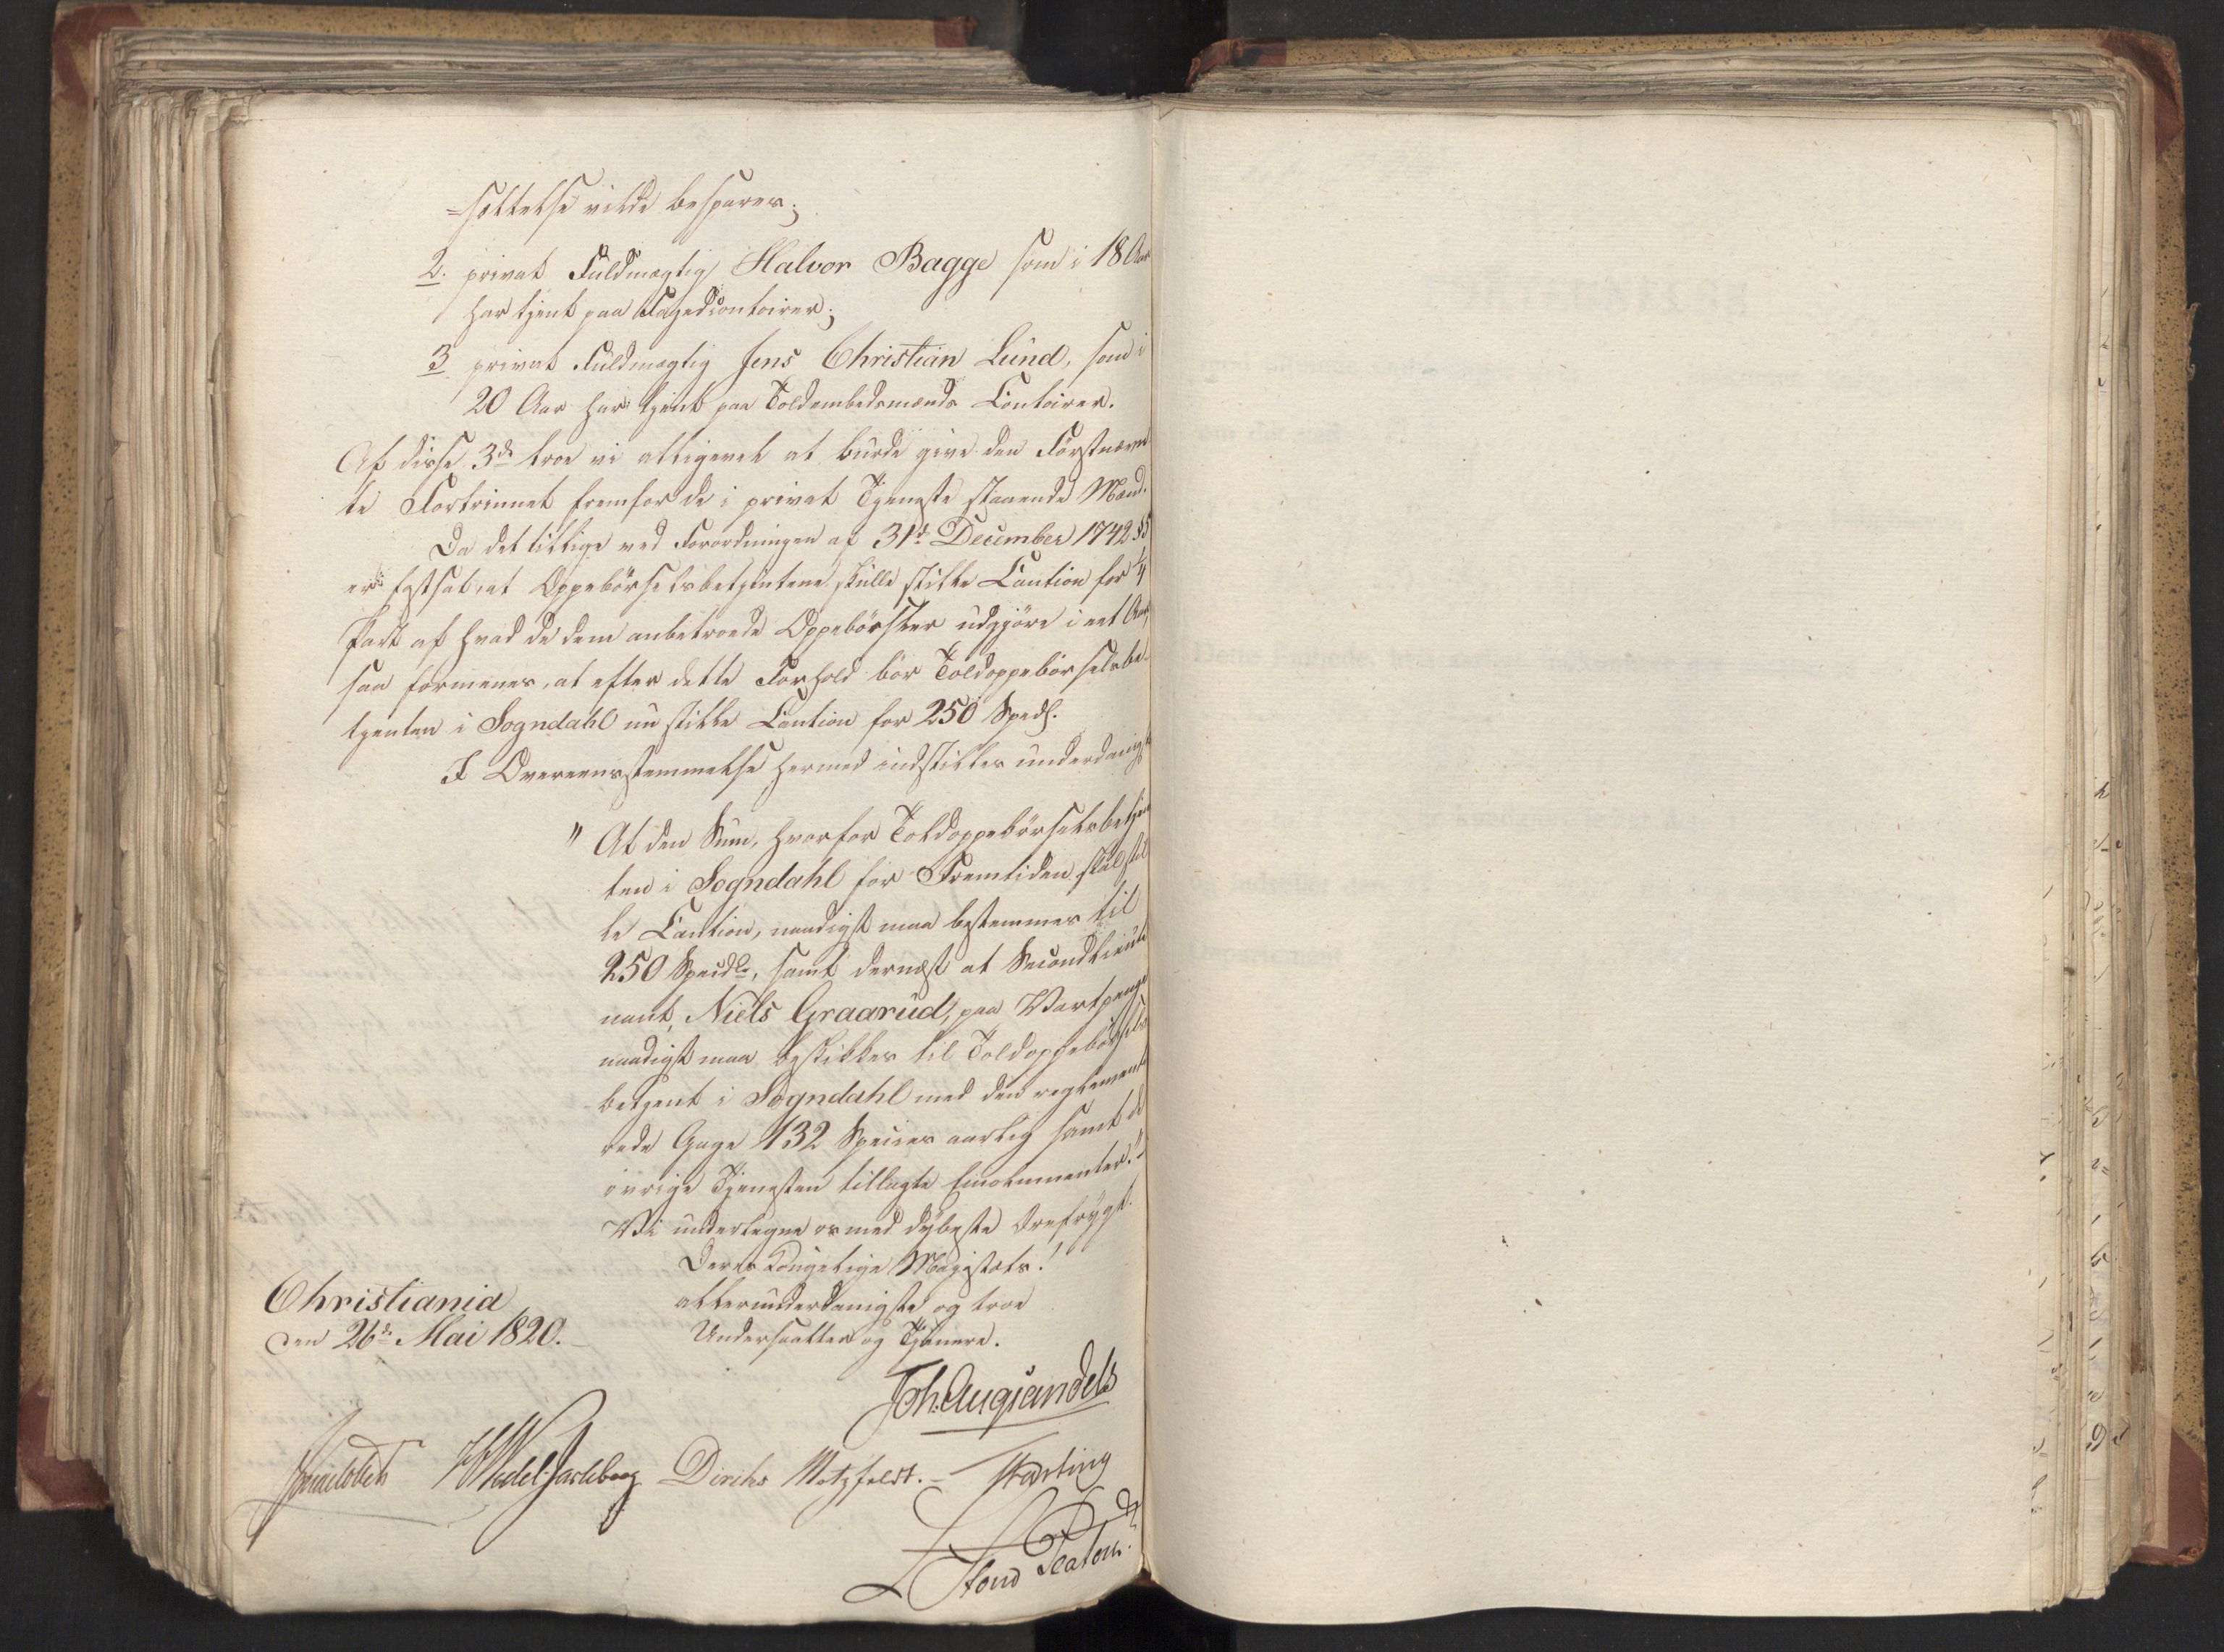 =sættelse vilde bespares;
2. privat Fuldmægtig Halvor Bagge som i 18 Aar
har tjent paa Fogedcontoirer;
3 privat Fuldmægtig Jens Christian Lund, som i
20 Aar har tjent paa Toldembedsmænds Contoirer.
Af disse 3de troe vi alligevel at burde give den Förstnævn
te Fortrinnet fremfor de i privat Tjeneste staaende Mænd.
Da det tillige ved Forordningen af 31te December 1742 §5
er fastsat, at Oppebörselsbetjentene skulle stille Caution for 1/4
Part af hvad de dem anbetroede Oppebörsler udgjöre i eet Aar,
saa formenes, at efter dette Forhold bör Toldoppebörselsbe-
tjenten i Sogndahl nu stille Caution for 250 Spd.
I Overeensstemmelse hermed indstilles underdanigst
" At den Sum, hvorfor Toldoppebörselsbetjen
ten i Sogndahl for Fremtiden skal stil
le Caution, naadigst maa bestemmes til
250 Specdlr, samt dernæst at Secondlieute
nant, Niels Graarud, paa Vartpenge
naadigst maa beskikkes til Toldoppebörsels
betjent i Sogndahl med den reglemente
rede Gage 132 Species aarlig samt de
övrige Tjenesten tillagte Emolumenter."
Vi undertegne os med dybeste Ærefrygt.
Deres Kongelige Majestæts!
allerunderdanigste og troe
Undersaatter og Tjenere.
Christiania
den 26de Mai 1820.
Joh. Aug Sandels
JCollett HWedel Jarlsberg Diriks Motzfeldt. Fasting
L Stoud Platou